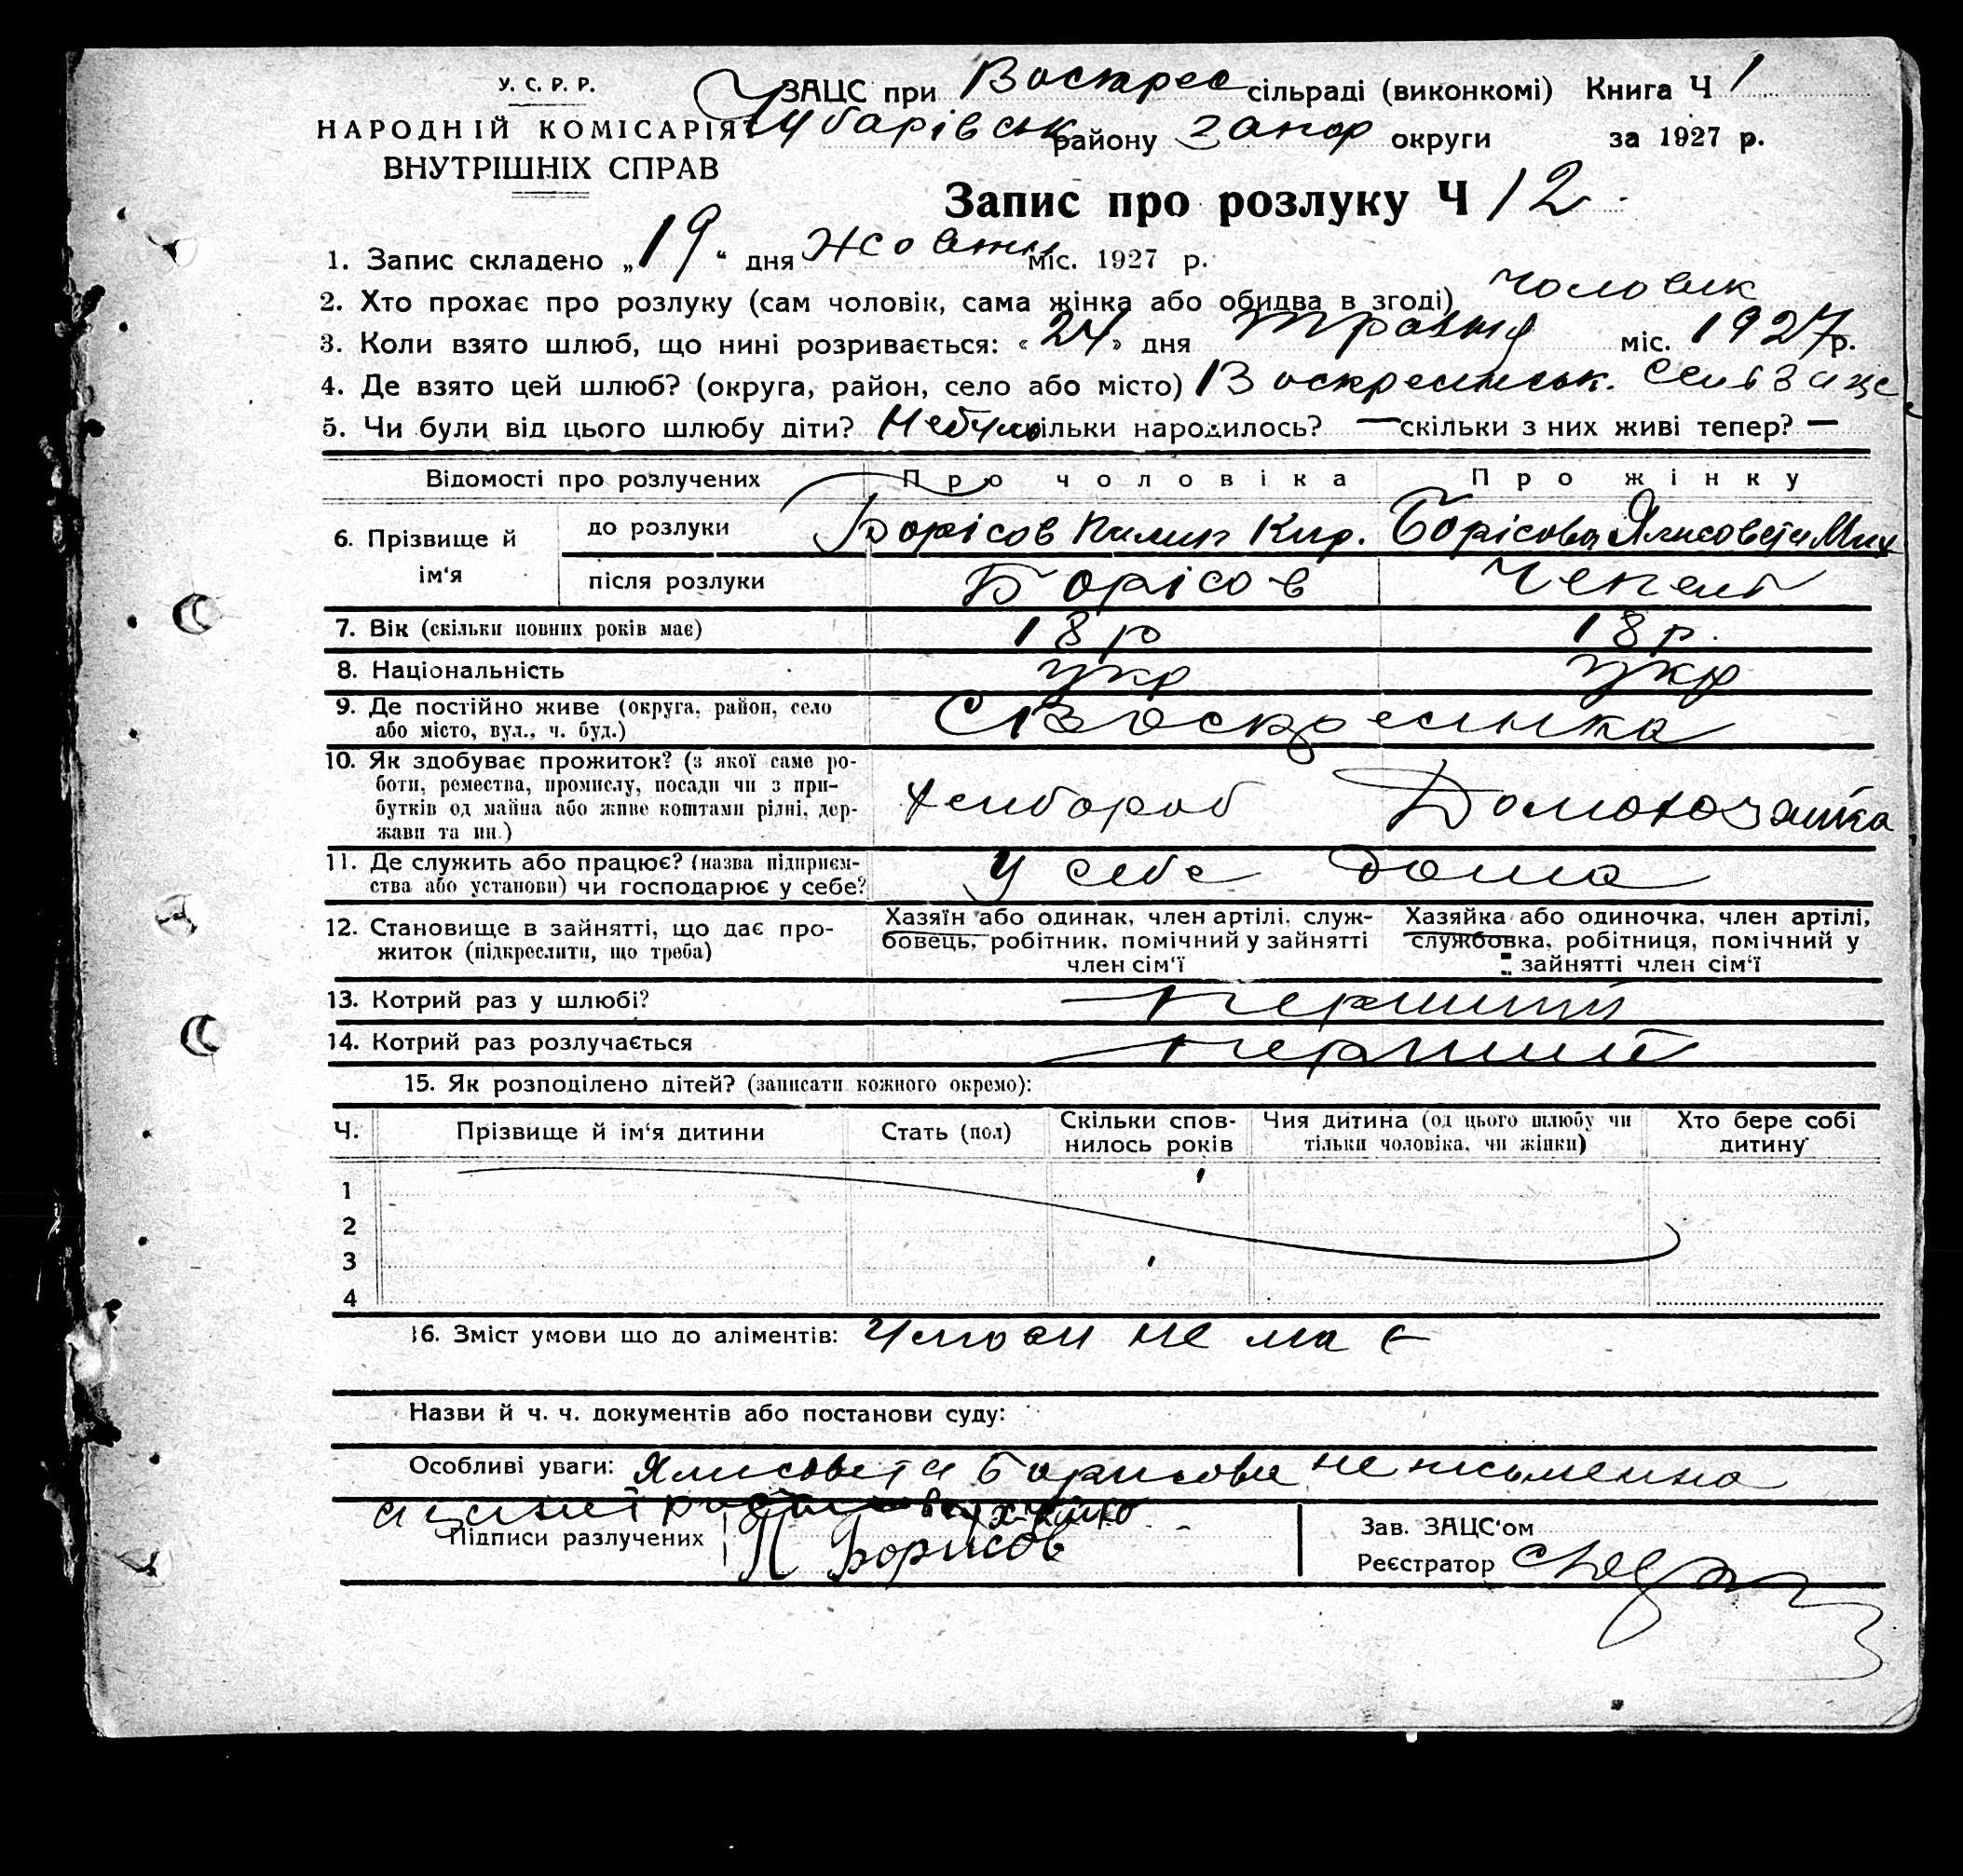 У. С. Р. Р.
НАРОДНІЙ КОМІСАРІЯТ
ВНУТРІШНІХ СПРАВ
ЗАЦС при Воскрес сільраді (виконкомі) Книга Ч 1
Чубарівськ району Запор округи за 1927 р.
Запис про розлуку Ч 12
1. Запис складено „19“ дня Жовтн міс. 1927 р.
2. Хто прохає про розлуку (сам чоловік, сама жінка або обидва в згоді) чоловік
3. Коли взято шлюб, що нині розривається: «24» дня травня міс. 1927 р.
4. Де взято цей шлюб? (округа, район, село або місто) Воскресенськ. сель Зацс
5. Чи були від цього шлюбу діти? Небуло скільки народилось? — скільки з них живі тепер? —
Відомості про розлучених Про чоловіка Про жінку
6. Прізвище й ім‘я до розлуки Борісов Пилип Кир. Борісова Ялисовета Мих
після розлуки Борісов Чепель
7. Вік (скільки повних років має) 18 р 18 р.
8. Національність укр укр
9. Де постійно живе (округа, район, село
або місто, вул., ч. буд.) С Воскресенка
10. Як здобуває прожиток? (з якої саме ро-
боти, ремества, промислу, посади чи з при-
бутків од майна або живе коштами рідні, дер-
жави та ин.) хлибороб Домохозяйка
11. Де служить або працює? (назва підприєм-
ства або установи) чи господарює у себе? у себе дома
12. Становище в зайнятті, що дає про-
житок (підкреслити, що треба)
Хазяїн або одинак, член артілі, служ-
бовець, робітник, помічний у зайнятті
член сім‘ї
Хазяйка або одиночка, член артілі,
службовка, робітниця, помічний у
зайнятті член сім‘ї
13. Котрий раз у шлюбі? перший
14. Котрий раз розлучається перший
15. Як розподілено дітей? (записати кожного окремо):
Ч. Прізвище й ім‘я дитини Стать (пол) Скільки спов-
нилось років Чия дитина (од цього шлюбу чи
тільки чоловіка, чи жінки) Хто бере собі
дитину
1
2
3
4
16. Зміст умови що до аліментів: Умови не має
Назви й ч. ч. документів або постанови суду:
Особливі уваги: Ялисовета Борисова не письменна
Підписи разлучених П Борисов
Зав. ЗАЦС‘ом
Реєстратор